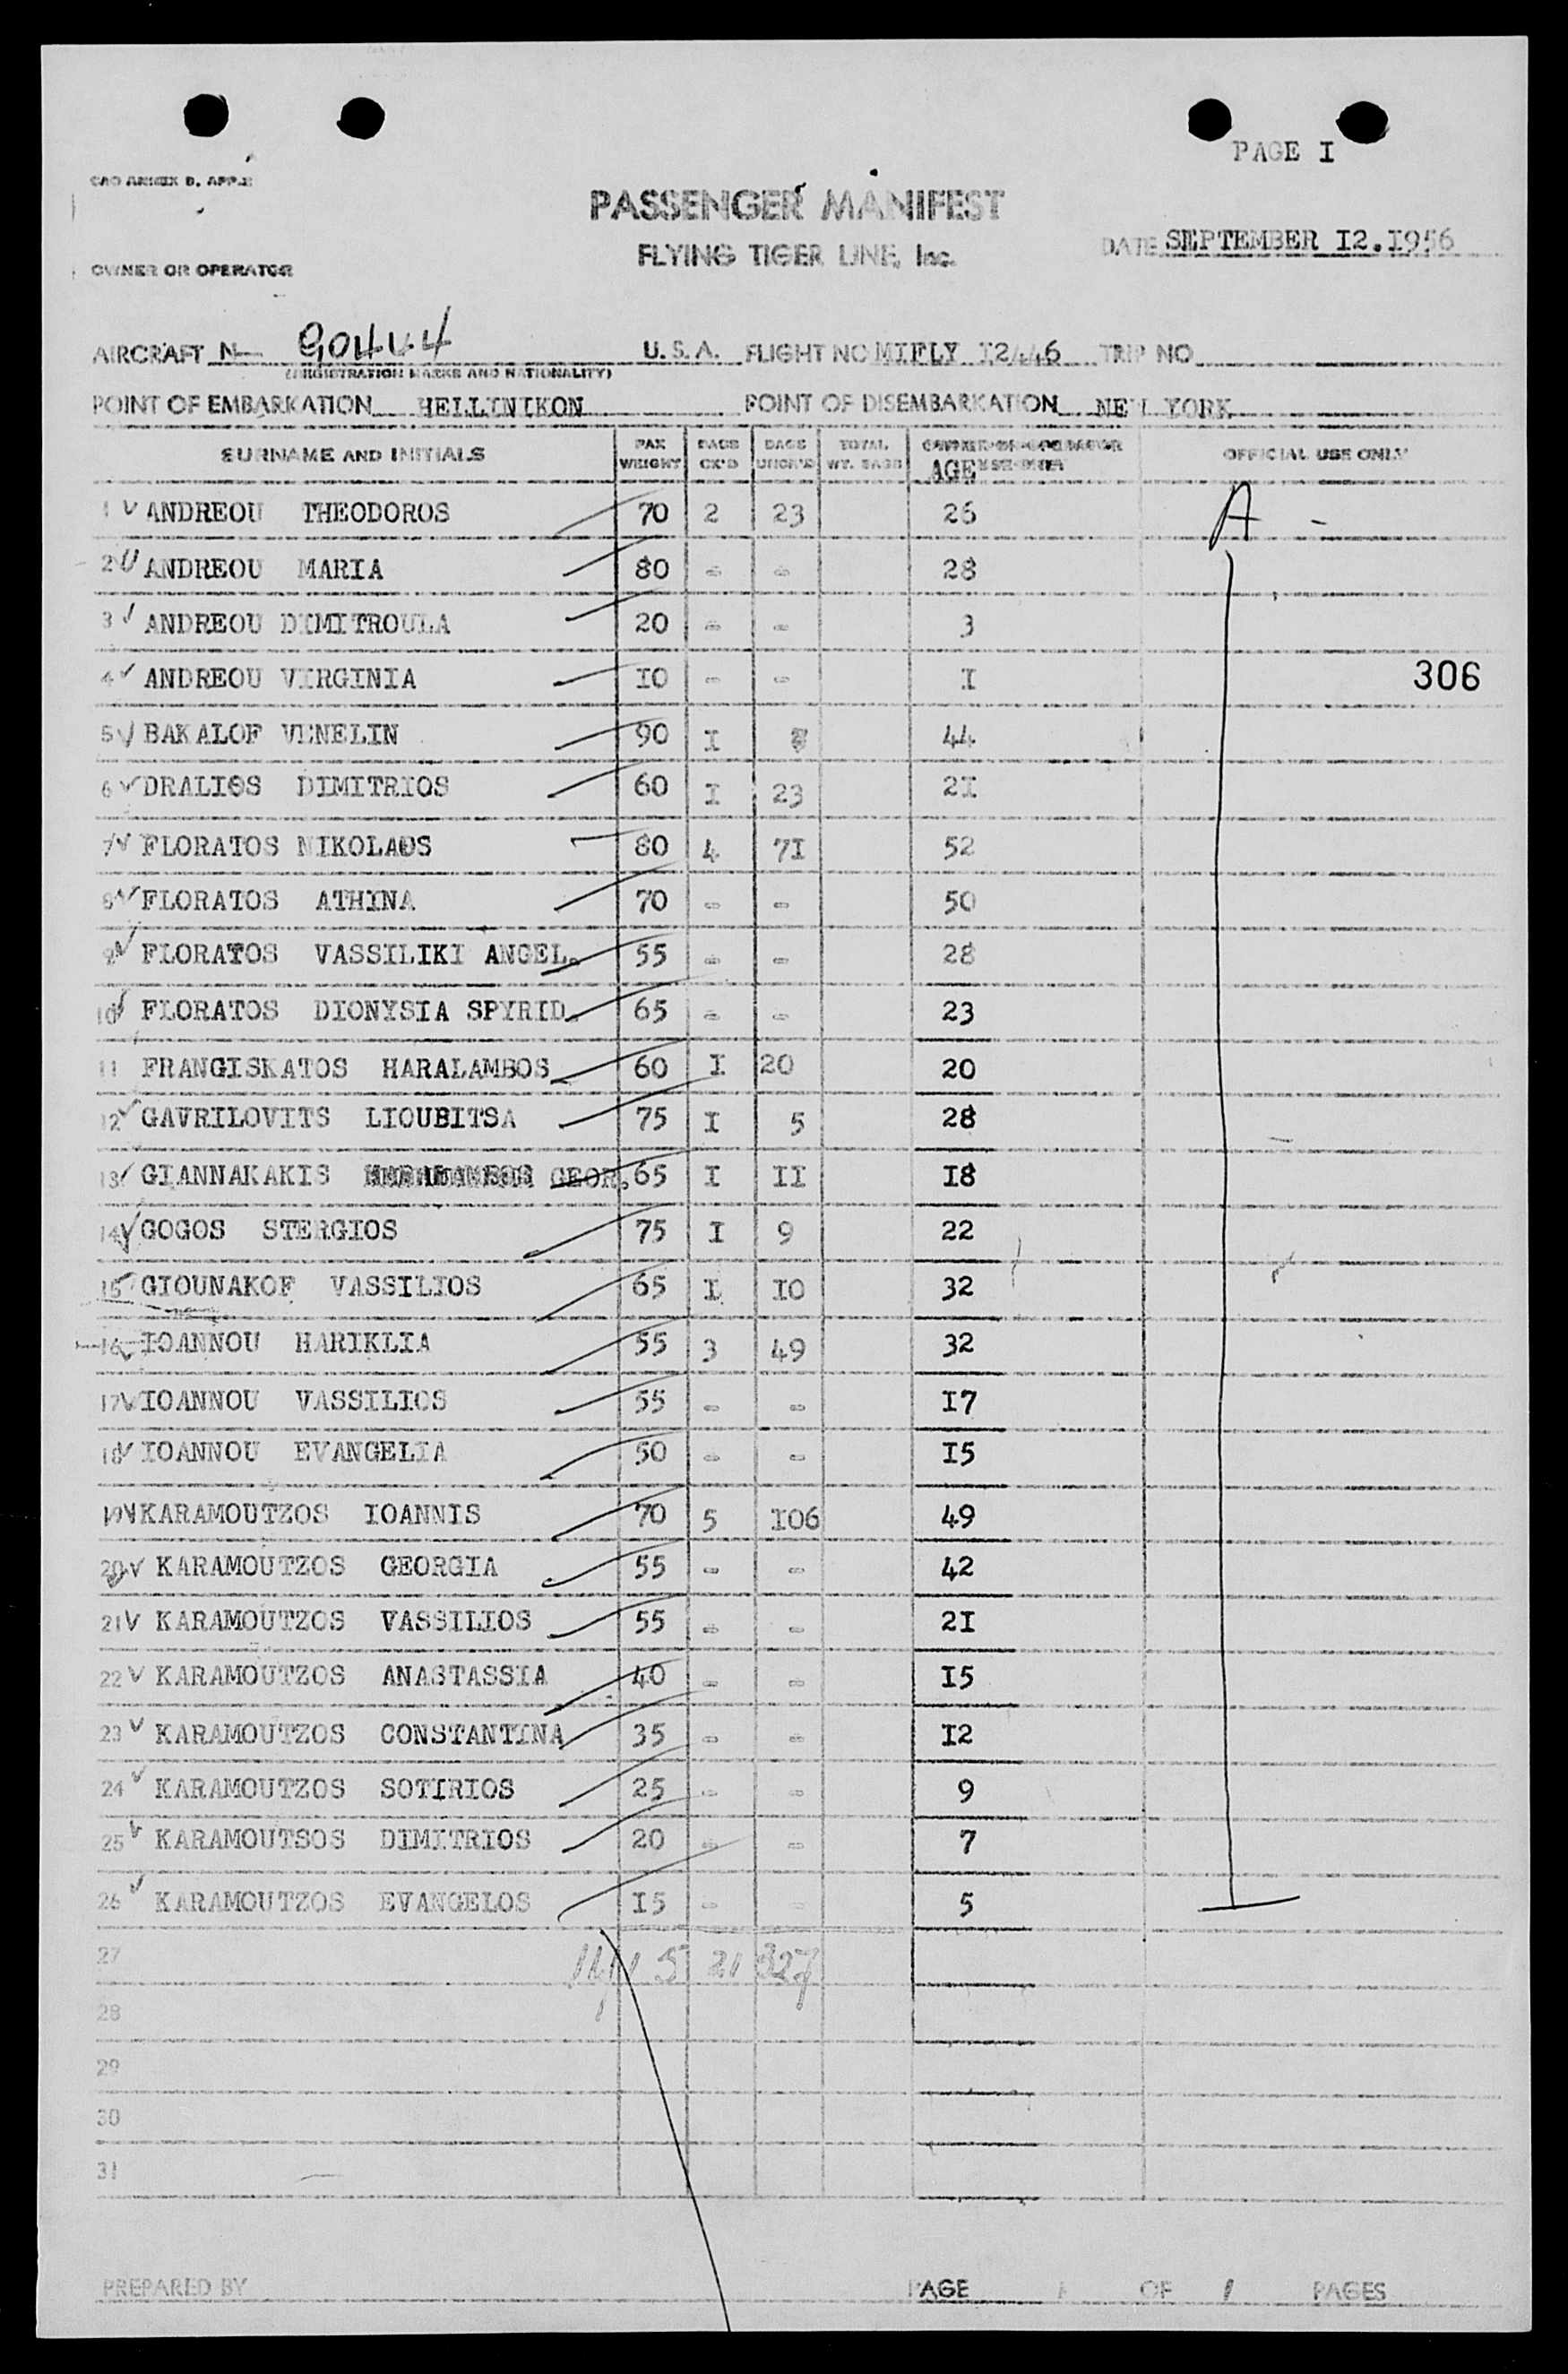 PAGE I
PASSENGER MANIFEST
FLYING TIGER LINE, Inc.
DATE SEPTEMBER I2.I956
OWNER OR OPERATOR
AIRCRAFT N 90444 U.S.A. FLIGHT NO MIFLY I2446 TRIP NO
(REGISTRATION MARKS AND NATIONALITY)
POINT OF EMBARKATION HELLINIKON POINT OF DISEMBARKATION NEW YORK
SURNAME AND INITIALS PAX WEIGHT BAGS CK'D BAGS UNCK'D TOTAL WT. BAGS AGE OFFICIAL USE ONLY
1 ANDREOU THEODOROS 70 2 23 26 A -
2 ANDREOU MARIA 80 - - 28
3 ANDREOU DIMITROULA 20 - - 3
4 ANDREOU VIRGINIA I0 - - I 306
5 BAKALOF VENELIN 90 I 44
6 DRALIOS DIMITRIOS 60 I 23 2I
7 FLORATOS NIKOLAOS 80 4 7I 52
8 FLORATOS ATHINA 70 - - 50
9 FLORATOS VASSILIKI ANGEL. 55 - - 28
10 FLORATOS DIONYSIA SPYRID. 65 - - 23
11 FRANGISKATOS HARALAMBOS 60 I 20 20
12 GAVRILOVITS LIOUBITSA 75 I 5 28
13 GIANNAKAKIS GEOR. 65 I II I8
14 GOGOS STERGIOS 75 I 9 22
15 GIOUNAKOF VASSILIOS 65 I I0 32
16 IOANNOU HARIKLIA 55 3 49 32
17 IOANNOU VASSILIOS 55 - - I7
18 IOANNOU EVANGELIA 50 - - I5
19 KARAMOUTZOS IOANNIS 70 5 I06 49
20 KARAMOUTZOS GEORGIA 55 - - 42
21 KARAMOUTZOS VASSILIOS 55 - - 2I
22 KARAMOUTZOS ANASTASSIA 40 - - I5
23 KARAMOUTZOS CONSTANTINA 35 - - I2
24 KARAMOUTZOS SOTIRIOS 25 - - 9
25 KARAMOUTSOS DIMITRIOS 20 - - 7
26 KARAMOUTZOS EVANGELOS I5 - - 5
27 21 327
28
29
30
31
PREPARED BY PAGE 1 OF 1 PAGES